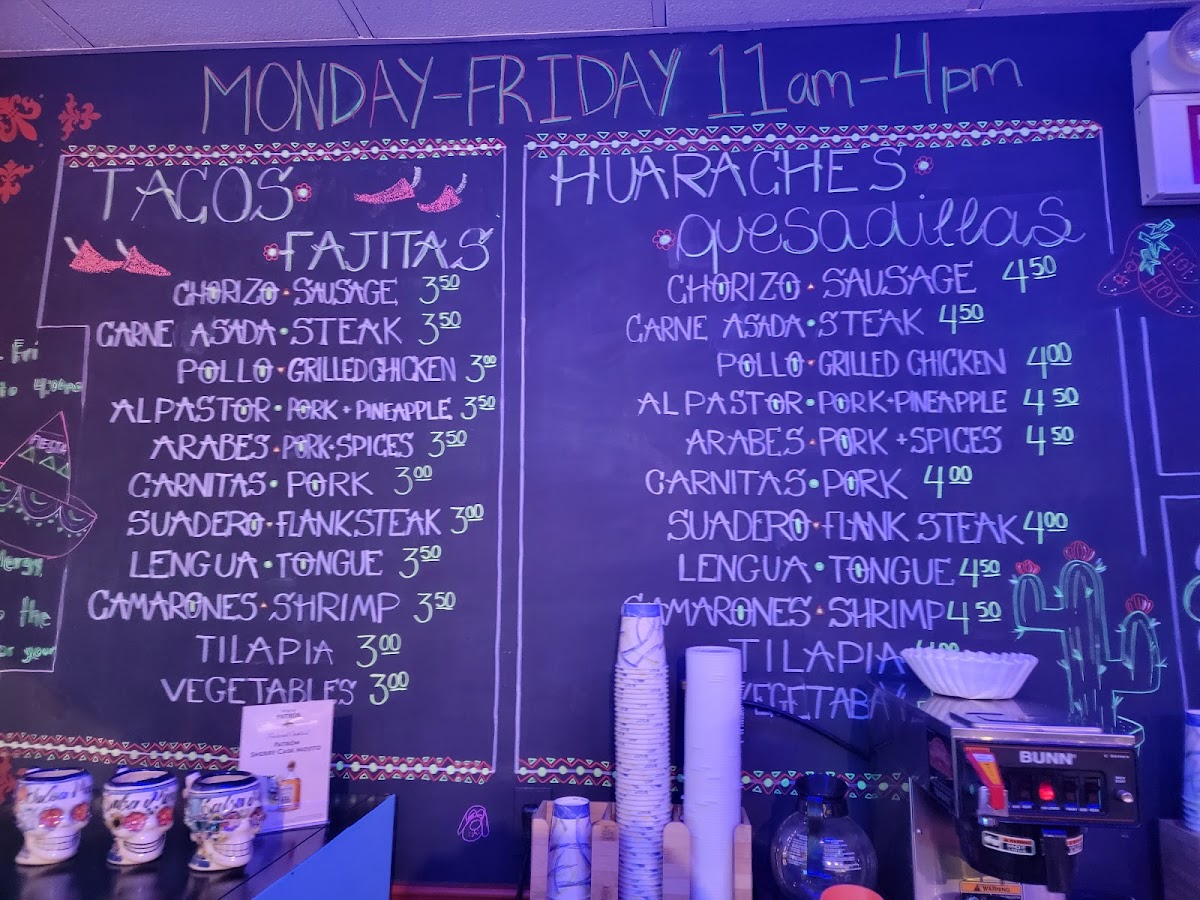 MONDAY-FRIDAY 11am-4pm
TACOS
FAJITAS
CHORIZO • SAUSAGE 3.50
CARNE ASADA • STEAK 3.50
POLLO • GRILLED CHICKEN 3.00
AL PASTOR • PORK + PINEAPPLE 3.50
ARABES • PORK + SPICES 3.50
CARNITAS • PORK 3.00
SUADERO • FLANK STEAK 3.00
LENGUA • TONGUE 3.50
CAMARONES • SHRIMP 3.50
TILAPIA 3.00
VEGETABLES 3.00
HUARACHES
quesadillas
CHORIZO • SAUSAGE 4.50
CARNE ASADA • STEAK 4.50
POLLO • GRILLED CHICKEN 4.00
AL PASTOR • PORK + PINEAPPLE 4.50
ARABES • PORK + SPICES 4.50
CARNITAS • PORK 4.00
SUADERO • FLANK STEAK 4.00
LENGUA • TONGUE 4.50
CAMARONES • SHRIMP 4.50
TILAPIA
VEGETAB
Fri
FIESTA
the
or your
HOT
HOT
HOT
PATRÓN
SHERRY CASK MOJITO
BUNN
WARNING